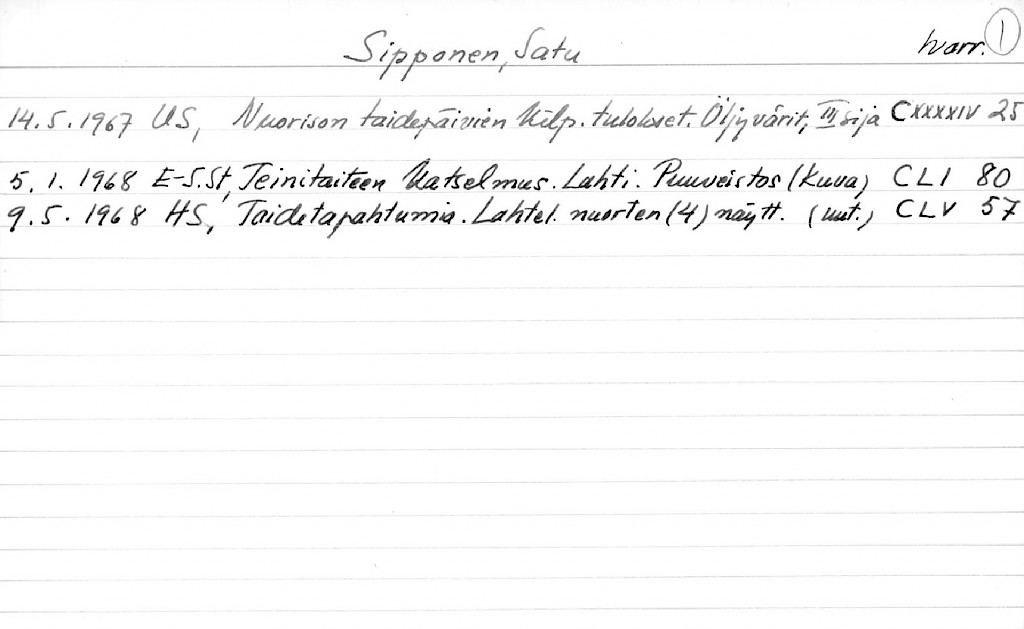 Sipponen, Satu harr. 1
14.5.1967 US, Nuorison taidepäivien kilp. tulokset. Öljyvärit, III sija CXXXXIV 25
5.1.1968 E-S.St, Teinitaiteen katselmus. Lahti. Puuveistos (kuva) CLI 80
9.5.1968 HS, Taidetapahtumia. Lahtel. nuorten (4) näytt. (uut.) CLV 57